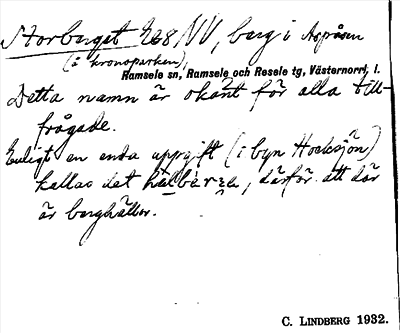 Storberget 268 NV, berg i Aspåsen
(å kronoparken),
Ramsele sn, Ramsele och Resele tg, Västernorrl. l.
Detta namn är okänt för alla till-
frågade.
Enligt en enda uppgift (i byn Hocksjön)
kallas det, därför att där
är berghällar.
C. LINDBERG 1932.